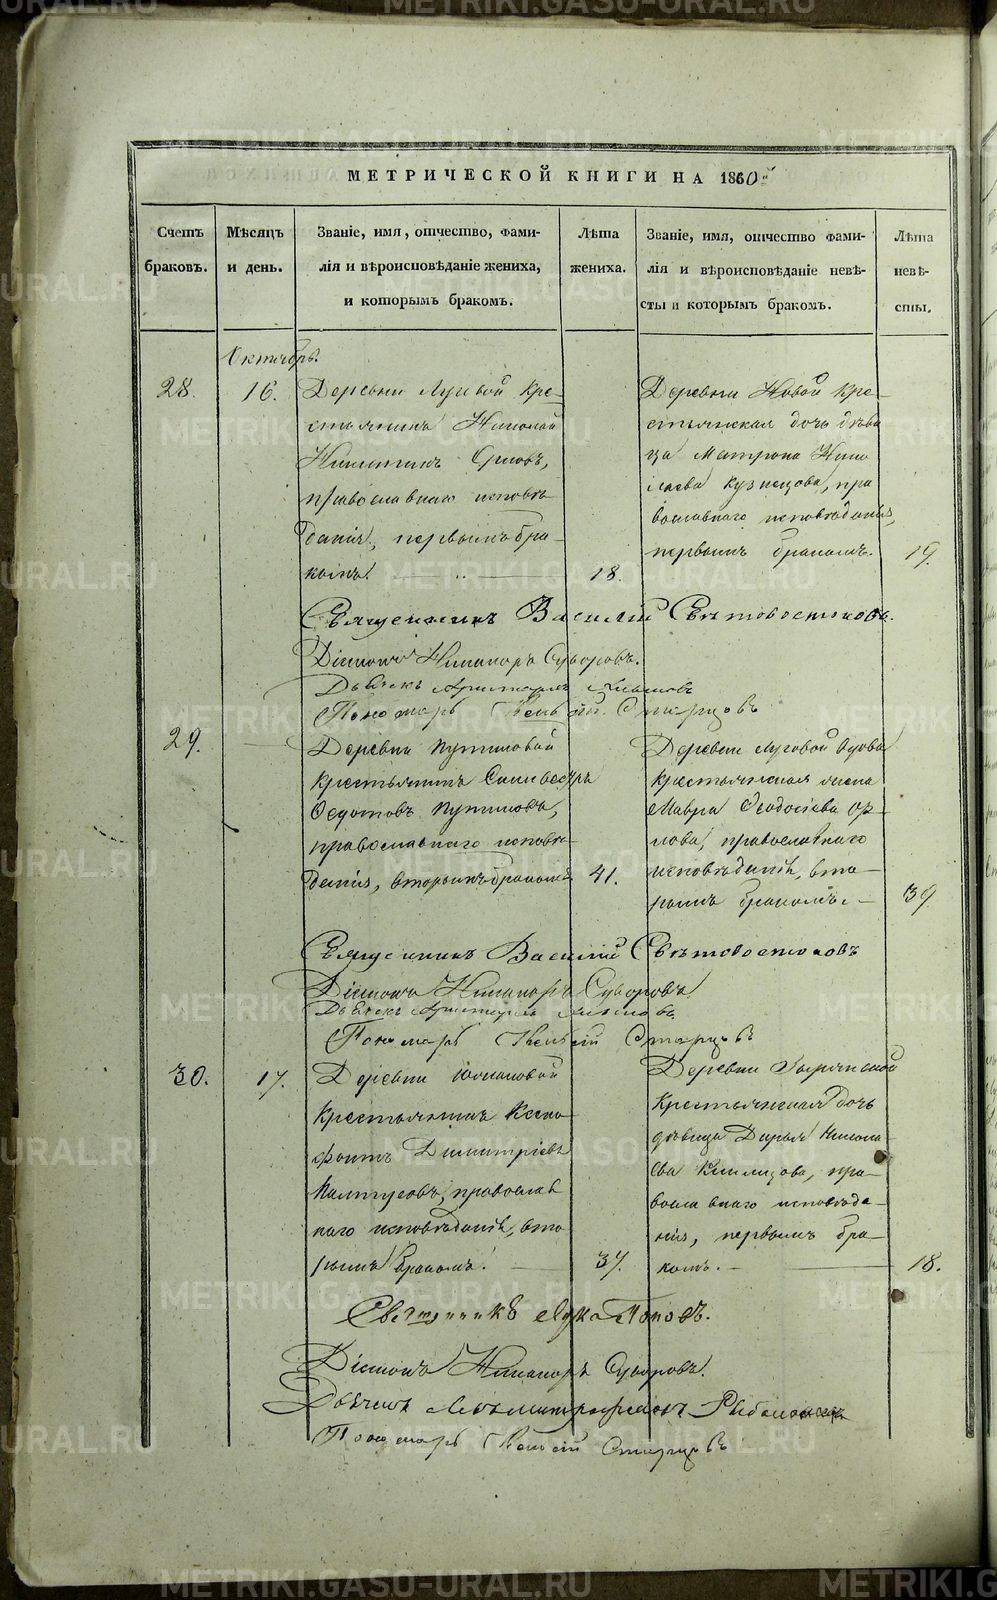 МЕТРИЧЕСКОЙ КНИГИ НА 1860й
Счетъ браковъ.
Мѣсяцъ и день.
Званіе, имя, отчество, фами-
лія и вѣроисповѣданіе жениха,
и которымъ бракомъ.
Лѣта жениха.
Званіе, имя, отчество фами-
лія и вѣроисповѣданіе невѣ-
сты и которымъ бракомъ.
Лѣта невѣ-
сты.
Октябрь.
28. 16.
Деревни Луговой кре-
стьянинъ Николай
Никитинъ Орловъ,
православнаго исповѣ
данія, первымъ бра-
комъ. 18.
Деревни Новой кре-
стьянская дочь дѣви
ца Матрона Нико
лаева Кузнецова, пра
вославнаго исповѣданія,
первымъ бракомъ. 19.
Священникъ Василій Свѣтовостоковъ.
Діаконъ Никаноръ Суворовъ.
Дьячекъ
Пономарь Старцовъ
29.
Деревни Путиловой
крестьянинъ Сильвестръ
Федотовъ Путиловъ,
православнаго исповѣ-
данія, вторымъ бракомъ 41.
Деревни Луговой вдова
крестьянская жена
Мавра Феодосіева Ор-
лова, православнаго
исповѣданія, вто-
рымъ бракомъ. 39.
Священникъ Василій Свѣтовостоковъ
Діаконъ Никаноръ Суворовъ
Дьячекъ
Пономарь Старцовъ
30. 17.
Деревни Юлаковой
крестьянинъ Ксено
фонтъ Димитріевъ
православ
наго исповѣданія, вто
рымъ бракомъ. 37.
Деревни
крестьянская дочь
дѣвица Дарья Никола-
ева пра-
вославнаго исповѣда-
нія, первымъ бра-
комъ. 18.
Священникъ Лука Поповъ.
Діаконъ Никаноръ Суворовъ.
Дьячекъ
Пономарь Старцовъ
METRIKI.GASO-URAL.RU